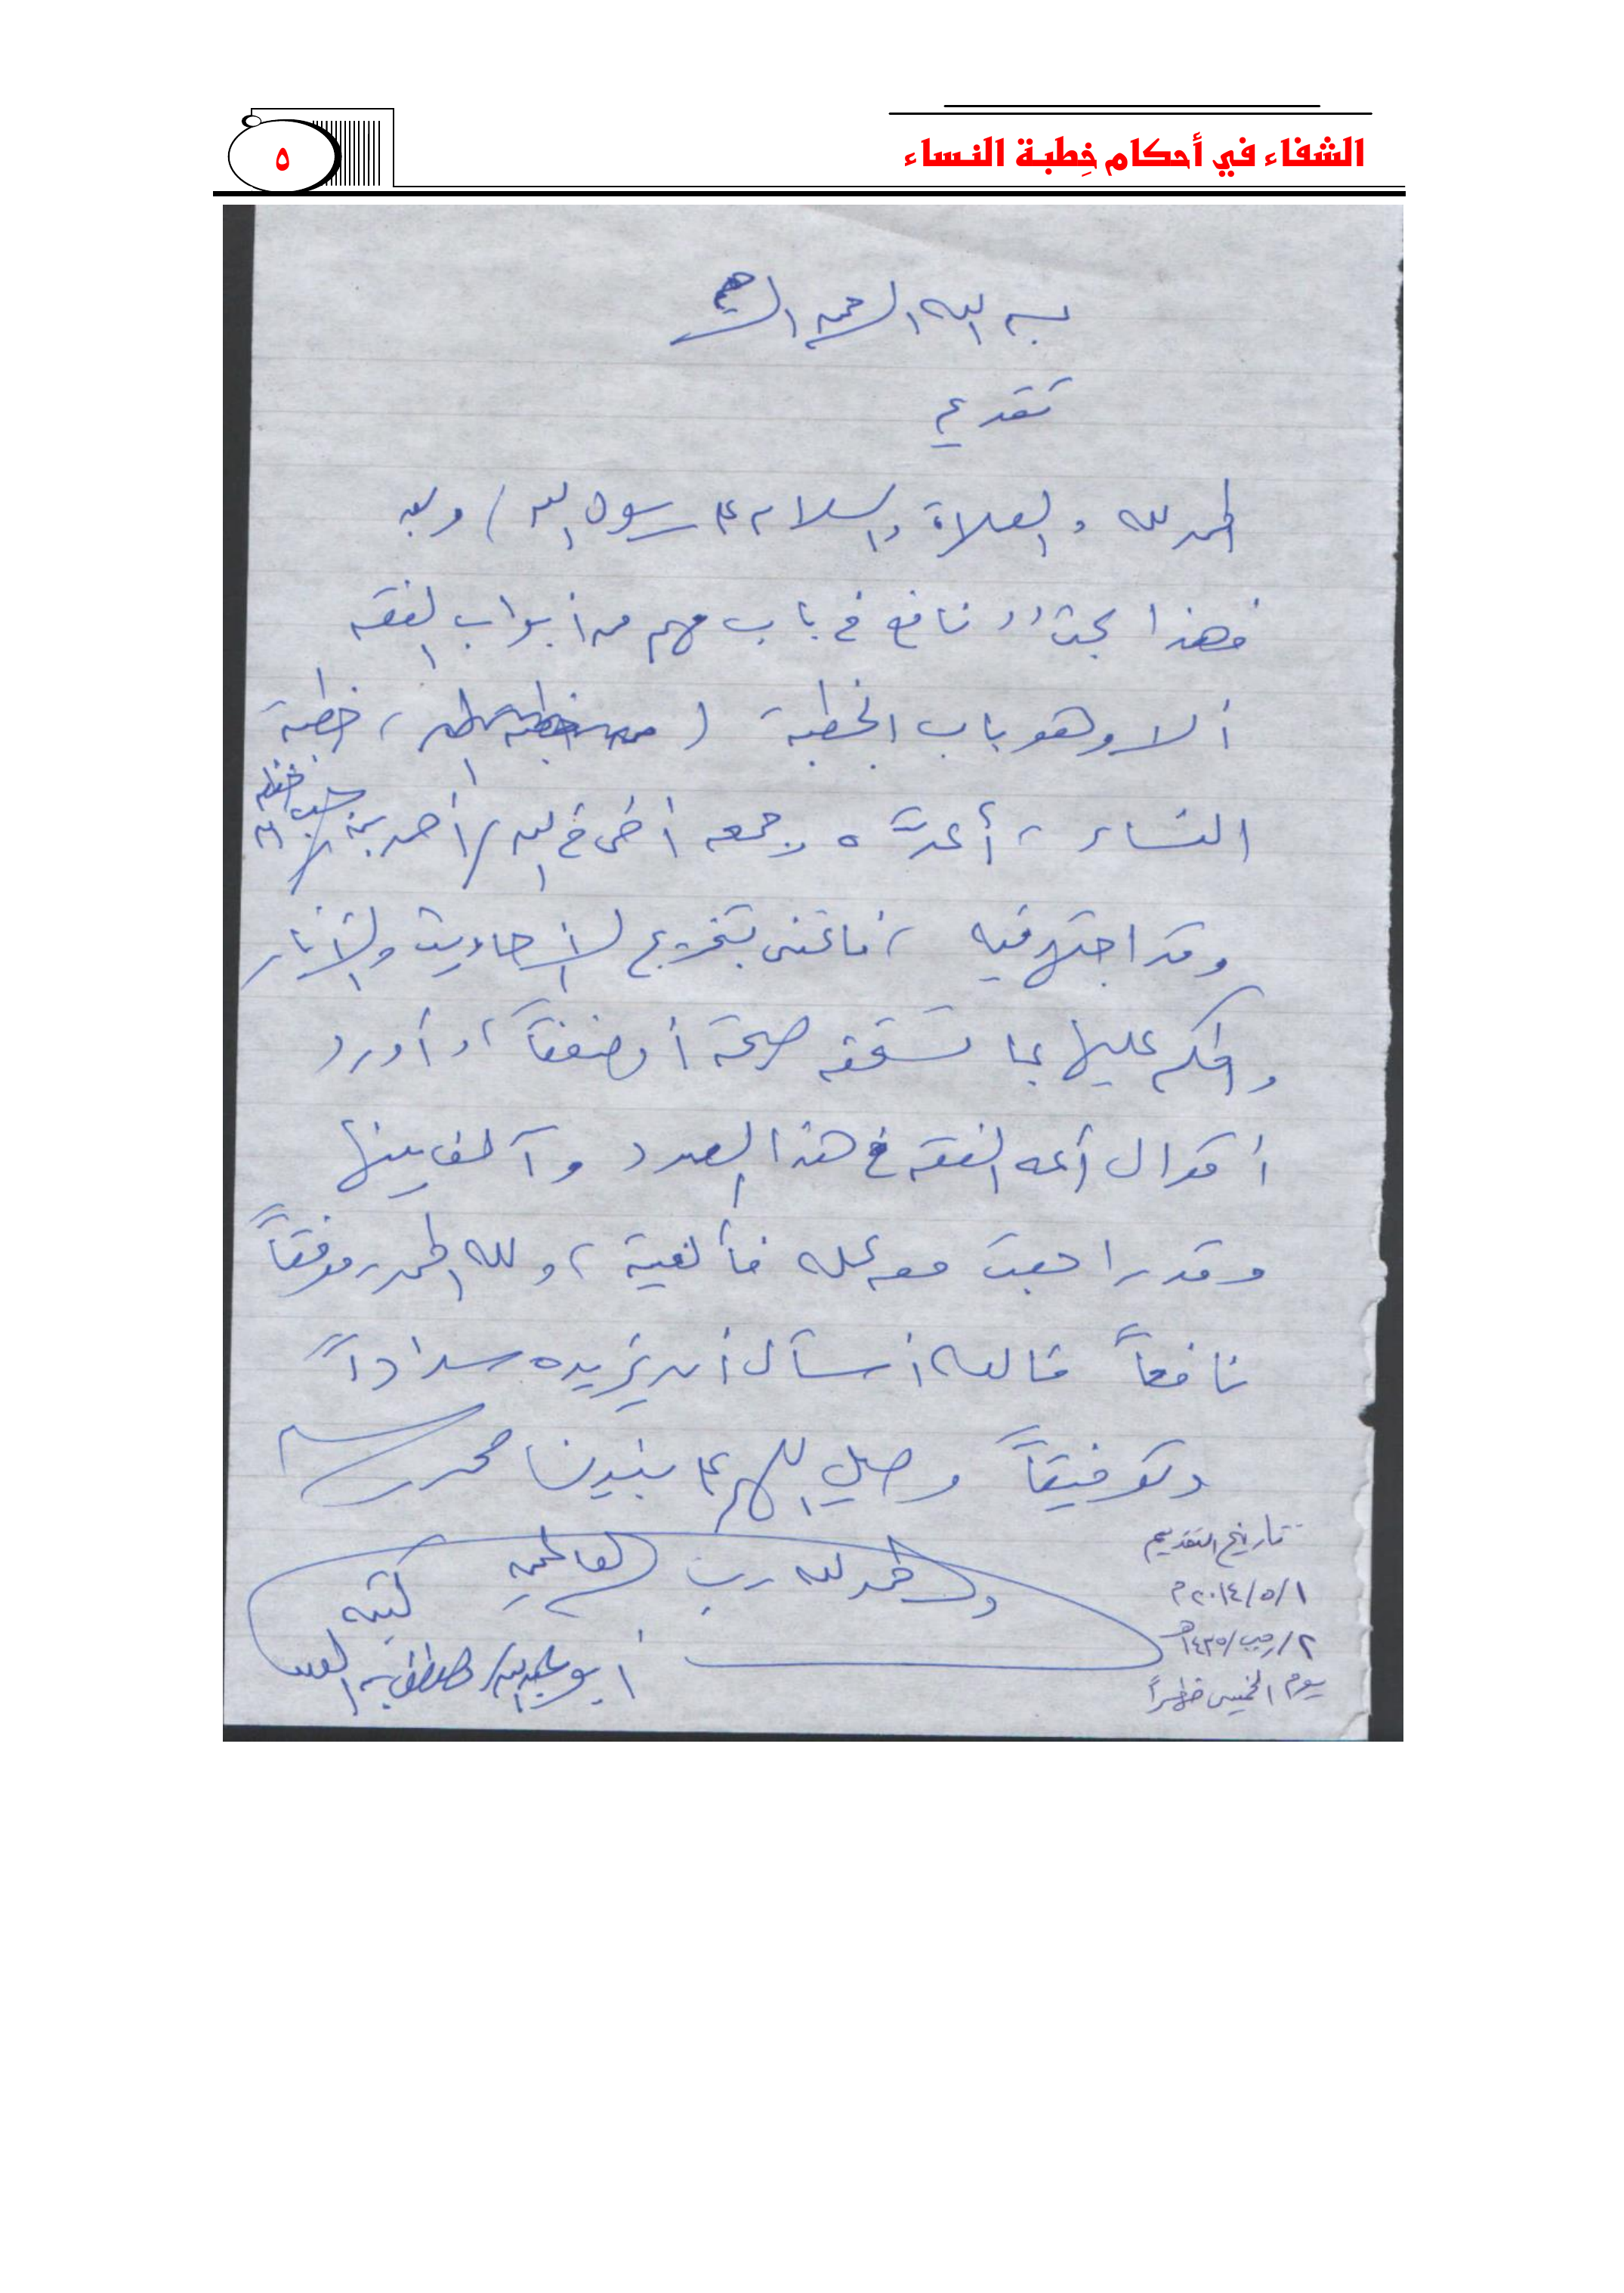 الشفاء في أحكام خِطبة النساء
٥
بسم الله الرحمن الرحيم
تقديم
الحمد لله والصلاة والسلام على رسول الله / وبعد
فهذا بحث نافع في باب مهم من أبواب الفقه
ألا وهو باب الخطبة ( خطبة
النساء ، أعدَّه وجمعه أخى في الله / أحمد بن
وقد اجتهد فيه ، فاعتنى بتخريج الأحاديث والآثار
والحكم عليها بما تستحقه صحة أو ضعفاً ، وأورد
أقوال أئمة الفقه في هذا الصدد وآلف بينها
وقد راجعت معه عمله فألفيته ، ولله الحمد ، موفقاً
نافعاً فالله أسأل أن يزيده سداداً
وتوفيقاً وصلِ اللهم على نبينا محمد وسلم
والحمد لله رب العالمين
كتبه
أبو عبد الله / مصطفى بن العدوي
تاريخ التقديم
١/٥/٢٠١٤م
٢/رجب/١٤٣٥هـ
يوم الخميس ظهراً